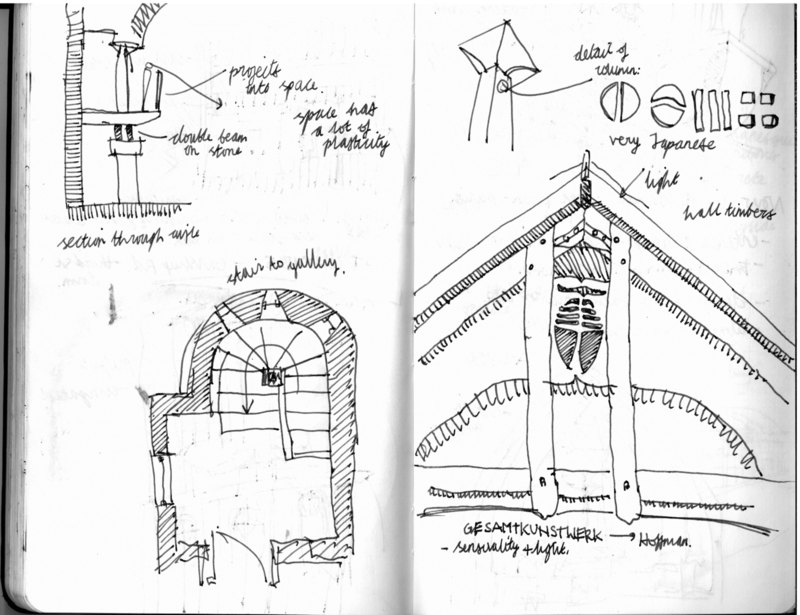 projects
into space.
space has
a lot of
plasticity
double beam
on stone.
section through aisle
stair to gallery.
detail of
column:
very Japanese
light
hall timbers
GESAMTKUNSTWERK → Hoffman.
- sensuality + light.